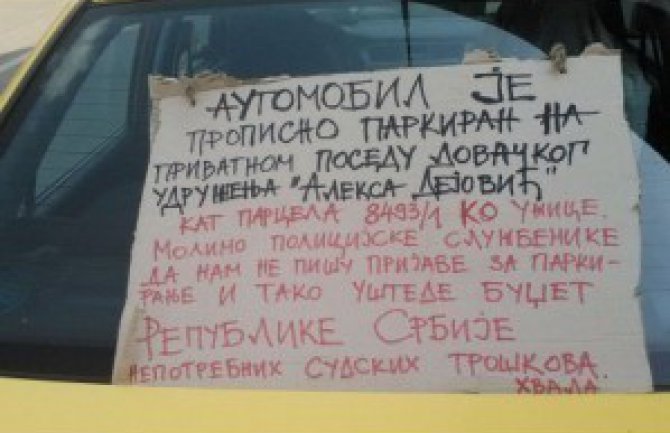 АУТОМОБИЛ ЈЕ
ПРОПИСНО ПАРКИРАН НА
ПРИВАТНОМ ПОСЕДУ ЛОВАЧКОГ
УДРУЖЕЊА "АЛЕКСА ДЕЈОВИЋ"
КАТ ПАРЦЕЛА 8493/1 КО УЖИЦЕ.
МОЛИМО ПОЛИЦИЈСКЕ СЛУЖБЕНИКЕ
ДА НАМ НЕ ПИШУ ПРИЈАВЕ ЗА ПАРКИ-
РАЊЕ И ТАКО УШТЕДЕ БУЏЕТ
РЕПУБЛИКЕ СРБИЈЕ
НЕПОТРЕБНИХ СУДСКИХ ТРОШКОВА.
ХВАЛА